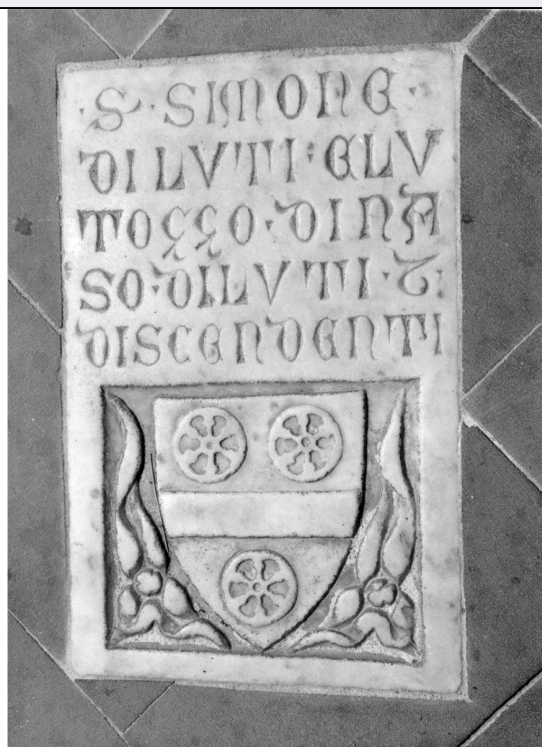 ·S· SIMONE·
DI LVTI: ELV
TOZZO·DINA
SO·DILVTI·⁊:
DISCENDENTI